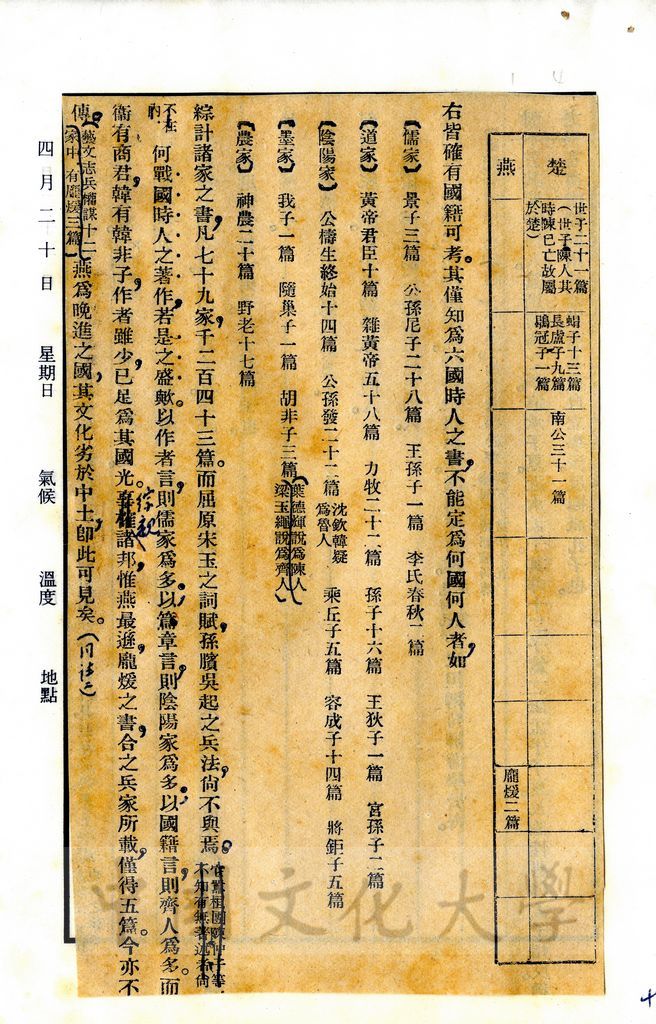 楚
世子二十一篇
（世子陳人其
時陳已亡故屬
於楚）
蜎子十三篇
長盧子九篇
鶡冠子一篇
南公三十一篇
燕
龐煖二篇
右皆確有國籍可考。其僅知爲六國時人之書，不能定爲何國何人者，如
【儒家】　景子三篇　公孫尼子二十八篇　王孫子一篇　李氏春秋二篇
【道家】　黃帝君臣十篇　雜黃帝五十八篇　力牧二十二篇　孫子十六篇　王狄子一篇　宮孫子二篇
【陰陽家】　公檮生終始十四篇　公孫發二十二篇　乘丘子五篇　容成子十四篇　將鉅子五篇
沈欽韓疑
爲魯人
【墨家】　我子一篇　隨巢子一篇　胡非子三篇
（葉德輝說爲陳人
梁玉繩說爲齊人）
【農家】　神農二十篇　野老十七篇
綜計諸家之書，凡七十九家，千二百四十三篇。而屈原宋玉之詞賦，孫臏吳起之兵法，尚不與焉。
不知有無著述者尚
不在
內
何戰國時人之著作，若是之盛歟。以作者言，則儒家爲多，以篇章言，則陰陽家爲多，以國籍言，則齊人爲多，而
衞有商君，韓有韓非子，作者雖少，已足爲其國光。綜觀諸邦，惟燕最遜，龐煖之書，合之兵家所載，僅得五篇。今亦不
傳。
（藝文志兵權謀十三
家中有龐煖三篇）
燕爲晚進之國，其文化劣於中土，卽此可見矣。
四月二十日　星期日　氣候　溫度　地點
中國文化大學